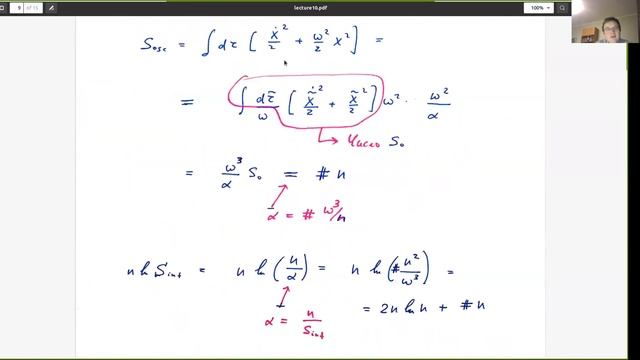 9 of 15
lecture10.pdf
S_osc = ∫ dτ [ ẋ²/2 + ω²/2 x² ] =
= ∫ dτ̃/ω [ ẋ̃²/2 + x̃²/2 ] ω² · ω²/α
→ Число S₀
= ω³/α S₀ = # n
α = # ω³/n
n ln S_int = n ln (n/α) = n ln (# n²/ω³) =
α = n/S_int
= 2n ln n + # n